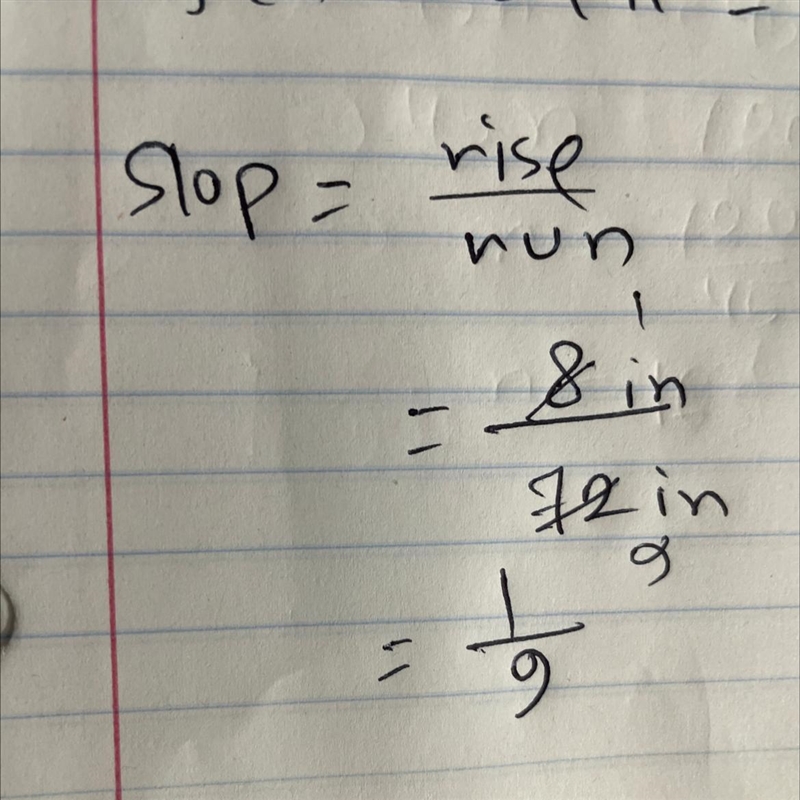 Slop = rise
run
1
= 8 in
72 in
9
= 1
9